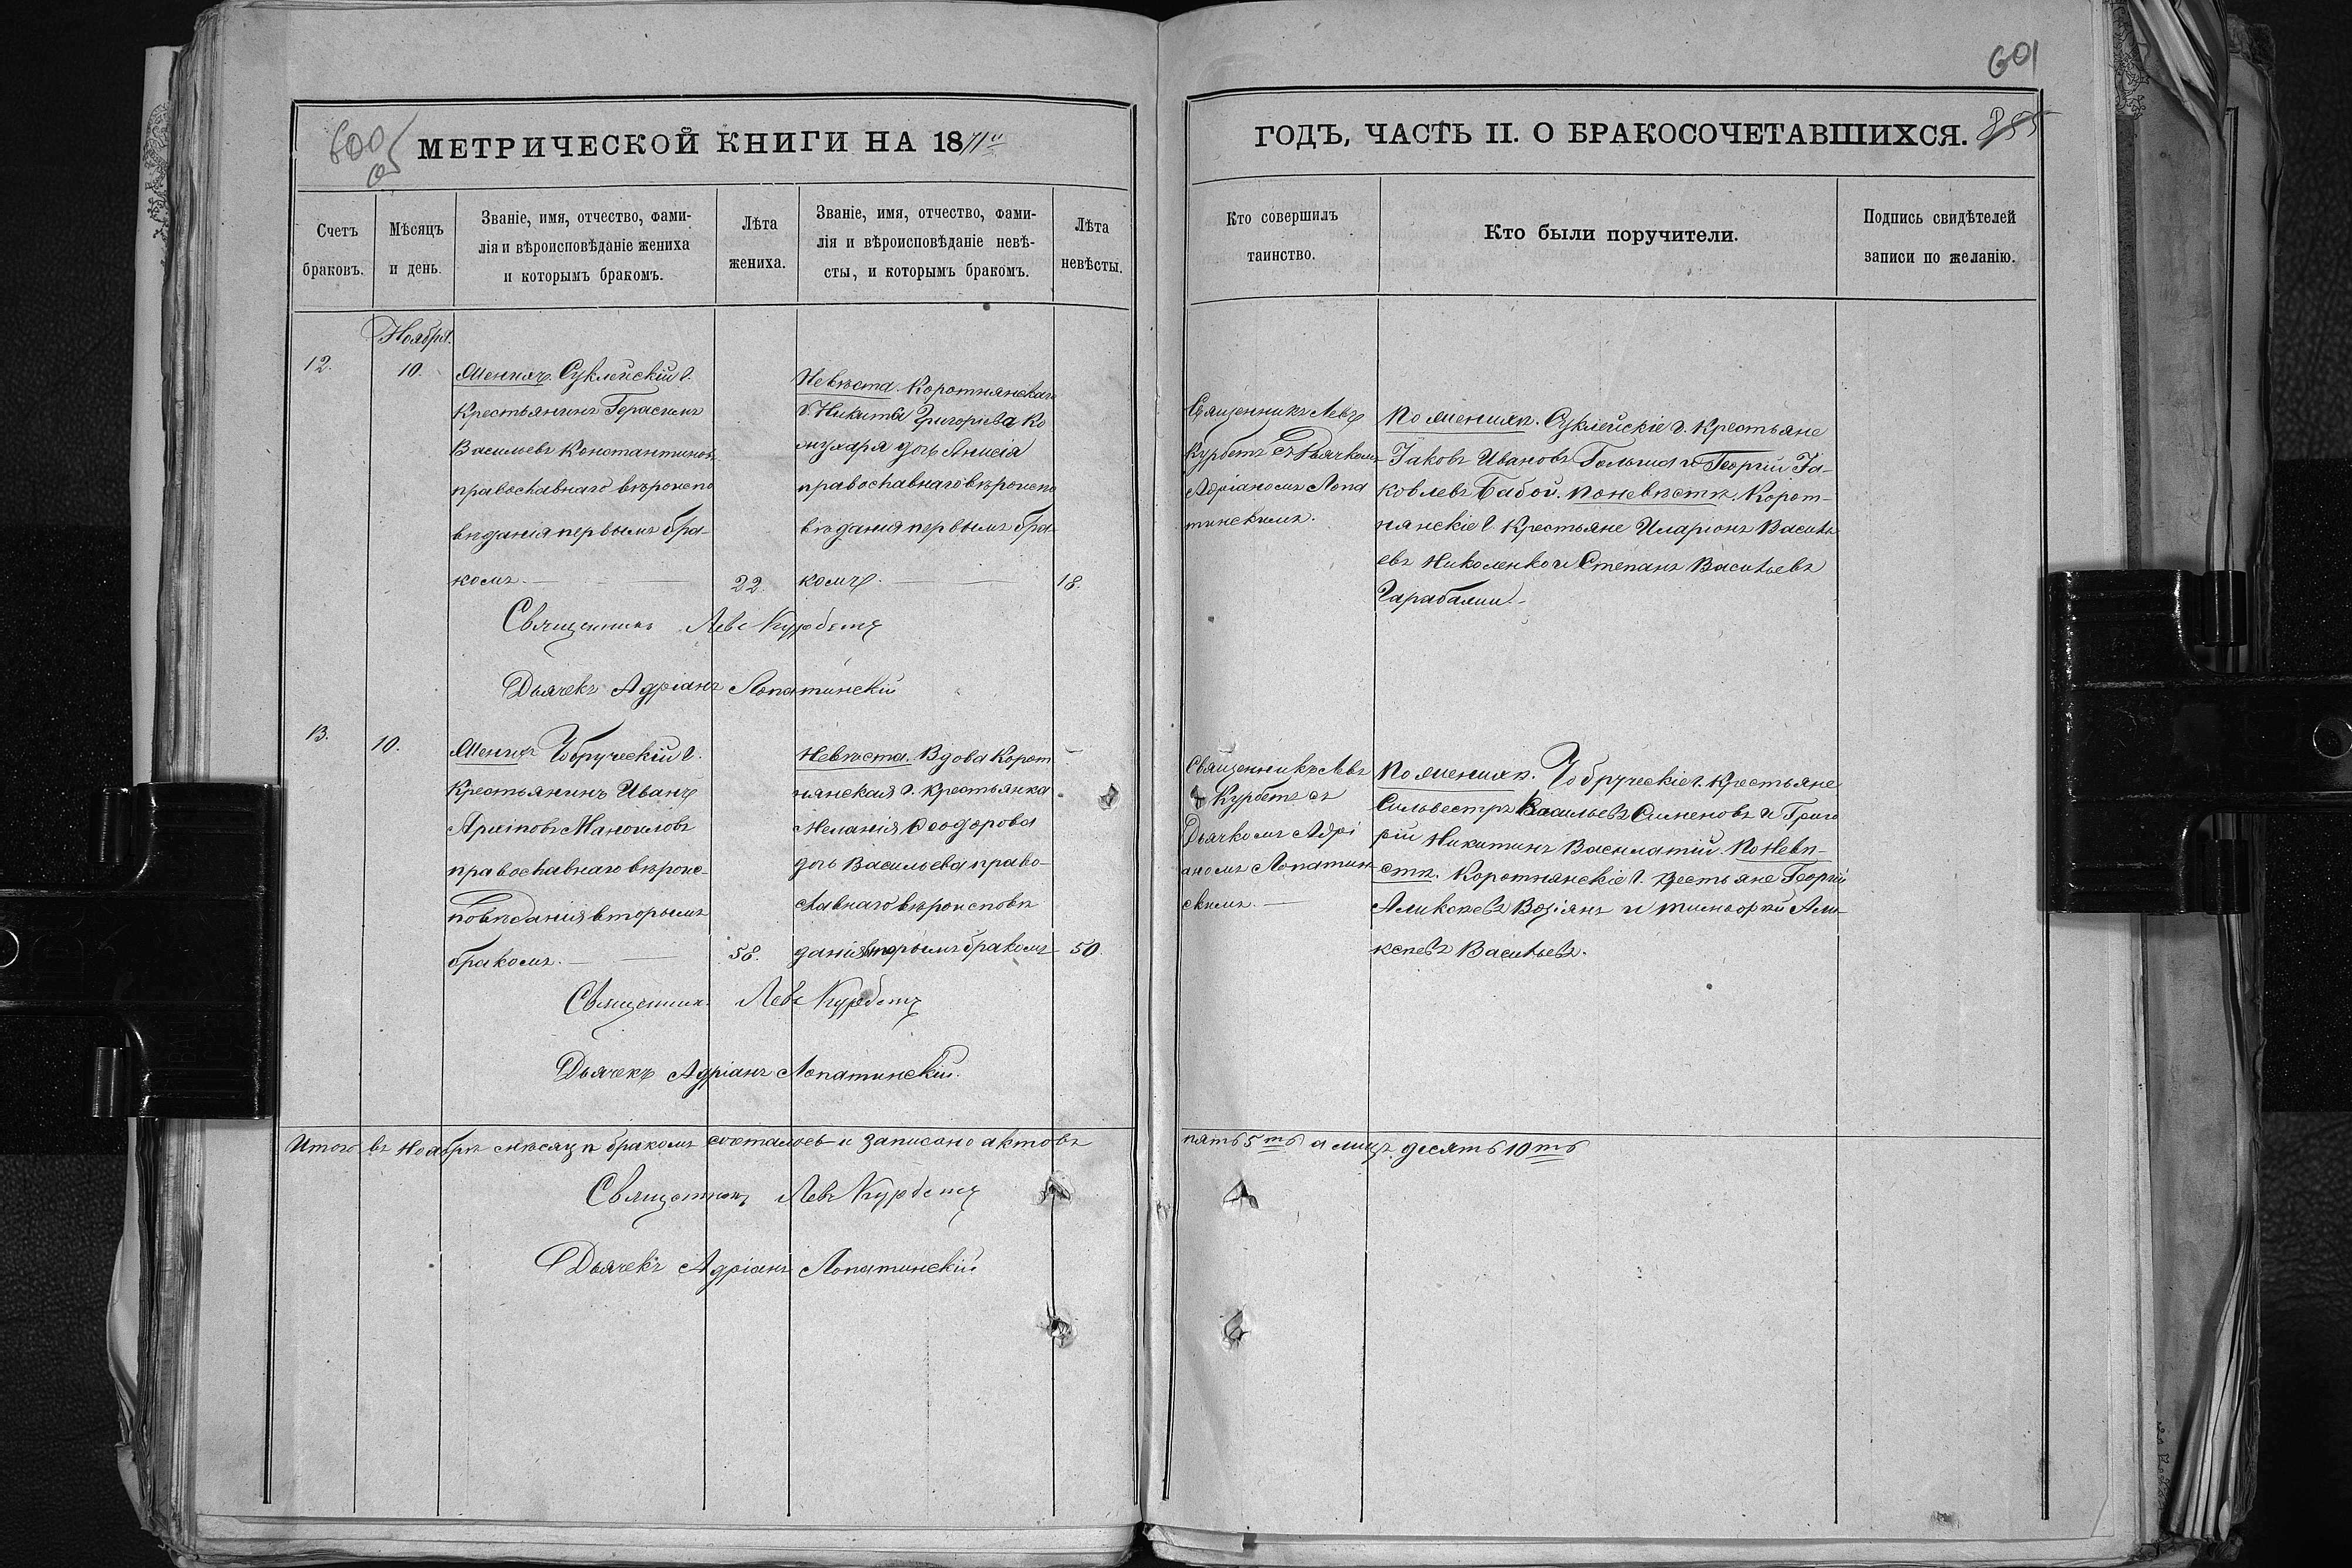 600
601
МЕТРИЧЕСКОЙ КНИГИ НА 1871й
ГОДЪ, ЧАСТЬ II. О БРАКОСОЧЕТАВШИХСЯ.
855
Счетъ браковъ.
Мѣсяцъ и день.
Званіе, имя, отчество, фами-
лія и вѣроисповѣданіе жениха
и которымъ бракомъ.
Лѣта жениха.
Званіе, имя, отчество, фами-
лія и вѣроисповѣданіе невѣ-
сты, и которымъ бракомъ.
Лѣта невѣсты.
Кто совершилъ
таинство.
Кто были поручители.
Подпись свидѣтелей
записи по желанію.
Ноября.
12.
10.
Женихъ. Суклейскій О.
Крестьянинъ Герасимъ
Васильевъ Константиновъ
православнаго вѣроиспо
вѣданія первымъ бра-
комъ.
22.
Невѣста. Коротнянскаго
О. Никиты Григорьева Ко
жухаря дочь Анисія
православнаго вѣроиспо
вѣданія первымъ бра-
комъ.
18.
Священникъ Левъ
Курбетъ съ Дьячкомъ
Адріаномъ Лопа
тинскимъ.
По женихѣ. Суклейскіе О. Крестьяне
Іаковъ Ивановъ и Георгій Іа-
ковлевъ Бабой. По невѣстѣ. Корот-
нянскіе О. Крестьяне Иларіонъ Василь
евъ Николенко и Степанъ Васильевъ
Священникъ Левъ Курбетъ
Дьячекъ Адріанъ Лопатинскій
13.
10.
Женихъ Чобручскій О.
Крестьянинъ Иванъ
Архіповъ Маноиловъ
православнаго вѣроис-
повѣданія вторымъ
бракомъ.
58.
Невѣста. Вдова Корот
нянская О. Крестьянка
Меланія Ѳеодорова
дочь Васильева право-
славнаго вѣроисповѣ
данія вторымъ бракомъ
50.
Священникъ Левъ
Курбетъ съ
Дьячкомъ Адрі
аномъ Лопатин
скимъ.
По женихѣ. Чобручскіе О. Крестьяне
Сильвестръ Васильевъ Симеоновъ и Григо
рій Никитинъ Василатій. По невѣ-
стѣ. Коротнянскіе О. Крестьяне Георгій
Алексѣевъ Возіянъ и Тимофей Але-
ксѣевъ Васильевъ.
Священникъ Левъ Курбетъ
Дьячекъ Адріанъ Лопатинскій.
Итого въ Ноябрѣ мѣсяцѣ бракомъ состалось и записано актовъ
пять 5ть а лицъ десять 10ть
Священникъ Левъ Курбетъ
Дьячекъ Адріанъ Лопатинскій